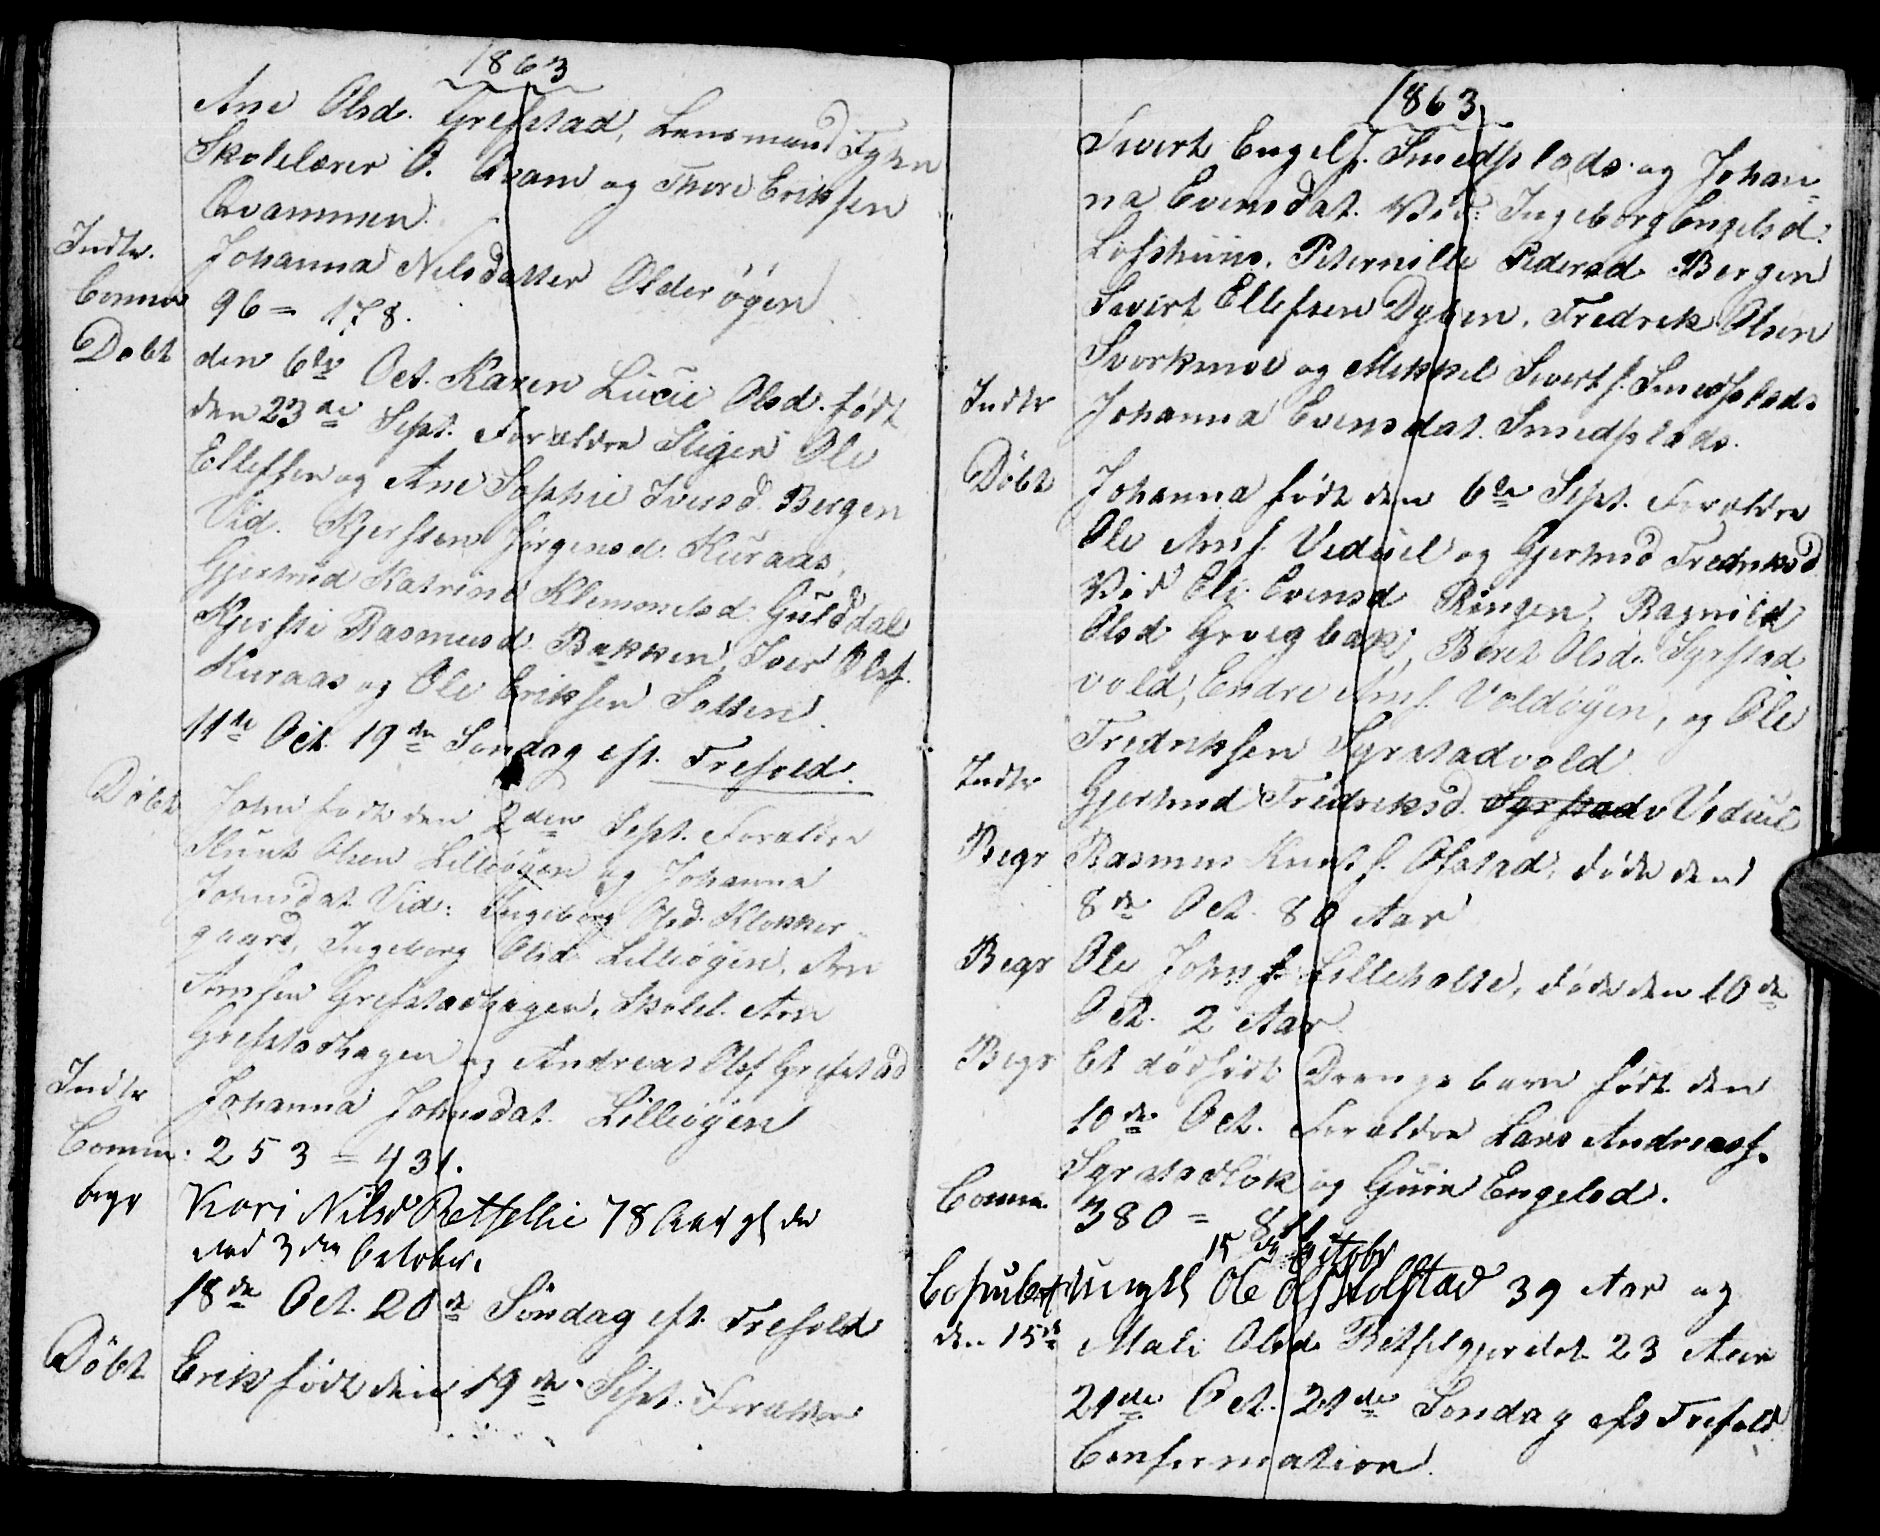 1863
Ane Olsd. Grefstad, Lensmand Fyhn
Skolelærer O. Qvam og Thore Eriksen
Qvammen.
Indtr. Johanna Nilsdatter Olderøgen
Comm 96 = 178.
Døbt den 6te Oct. Karen Lucie Olsd. født
den 23de Sept. Forældre Stiger Ole
Ellefsen og Ane Sophie Iversd. Bergen
Vid. Kjersten Jørgensd. Kuraas,
Gjertrud Katrine Klemmetsd. Gulddal
Kjersti Rasmusd. Bakken, Iver Olsf.
Kuraas og Ole Eriksen
11te Oct. 19de Søndag eft. Trefold.
Døbt John født den 2den Sept. Forældre
Knut Olsen Lilleøgen og Johanna
Johnsdat. Vid: Ingeborg Olsd. Klokker-
gaard, Ingeborg Olsd. Lilleøgen, Arn
Arnsen Grefstadhagen, Skolel. Arn
Grefstadhagen og Andreas Olsf. Grefstad
Indtr Johanna Johnsdat. Lilleøgen
Comm. 253 = 431.
begr Kari Nilsd 78 Aar gl. den
død 3die October.
18de Oct. 20de Søndag eft. Trefold
Døbt Erik født den 19de Sept. Forældre
1863
Sivert Engelsf. Smedsplads og Johan-
na Evensdat. Vid: Ingeborg Engelsd.
Lofshuus, Peternille Pedersd. Bergen
Sivert Ellefsen Dyben, Fredrek Olsen
Svorkmoe og Mikkel Sivertsf. Smedsplads
Indtr Johanna Evensdat. Smedsplads.
Døbt Johanna født den 6te Sept. Forældre
Ole Arnsf. Veduel og Gjertrud Fredriksd
Vid Eli Evensd Ringen, Ragnild
Olsd Grvegbak, Beret Olsd. Syrstad
vold, Endre Arnsf. Voldøyen, og Ole
Fredriksen Syrstadvold
Indtr Gjertrud Fredreksd. Syrstadv Veduel
Begr Rasmus Knutsf. Ofstad, døde den
8de Oct. 80 Aar
Begr Ole Johnsf. Lilleholte, døde den 10de
Oct. 2 Aar
Begr Et dødfødt Drengebarn født den
10de Oct. Forældre Lars Andreasf.
Syrstadløk og Guru Engelsd.
Comm. 380 = 811
15de Octobr
Copuleret ungkl Ole Olsf 39 Aar og
den 15de Mali Olsd. Retselgjerdet 23 Aar
21de Oct. 21de Søndag eft Trefold
Confermation.